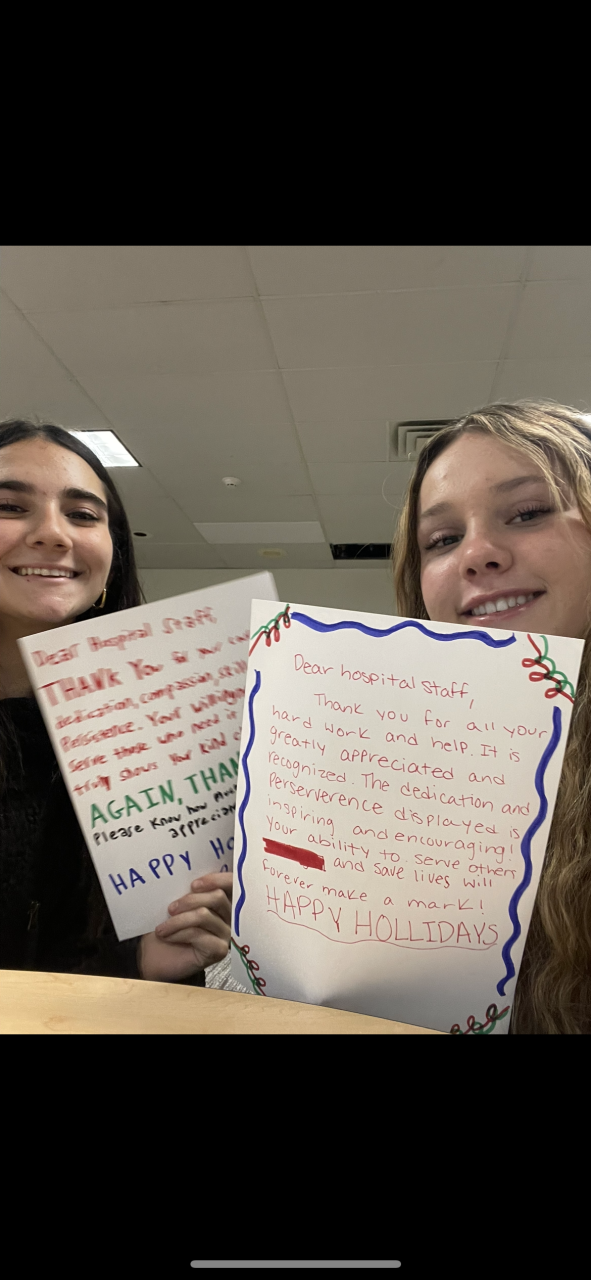 Dear Hospital Staff,
THANK YOU for all your
dedication, compassion,
Persistence. Your willingness
Serve those who need it
truly shows your kind
AGAIN, THAN
Please know how much
appreciat
HAPPY HO
Dear hospital staff,
Thank you for all your
hard work and help. It is
greatly appreciated and
recognized. The dedication and
Perserverence displayed is
inspiring and encouraging!
Your ability to serve others
and save lives will
forever make a mark!
HAPPY HOLLIDAYS